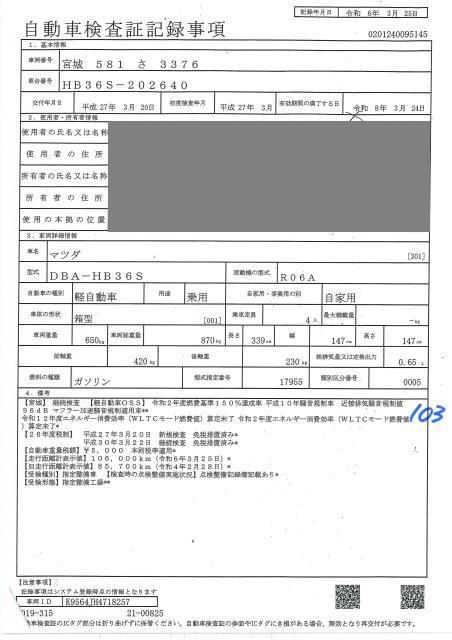 記録年月日 令和 6年 3月 25日
自動車検査証記録事項
0201240095145
1. 基本情報
車両番号 宮城 581 さ 3376
車台番号 HB36S-202640
交付年月日 平成 27年 3月 20日 初度検査年月 平成 27年 3月 有効期間の満了する日 令和 8年 3月 24日
2. 使用者・所有者情報
使用者の氏名又は名称
使用者の住所
所有者の氏名又は名称
所有者の住所
使用の本拠の位置
3. 車両詳細情報
車名 マツダ [301]
型式 DBA-HB36S 原動機の型式 R06A
自動車の種別 軽自動車 用途 乗用 自家用・事業用の別 自家用
車体の形状 箱型 [001] 乗車定員 4人 最大積載量 -kg
車両重量 650kg 車両総重量 870kg 長さ 339cm 幅 147cm 高さ 147cm
前軸重 420kg 後軸重 230kg 総排気量又は定格出力 0.65 L
燃料の種類 ガソリン 型式指定番号 17955 類別区分番号 0005
4. 備考
【宮城】 継続検査 【軽自動車OSS】 令和2年度燃費基準150%達成車 平成10年騒音規制車 近接排気騒音規制値
96dB マフラー加速騒音規制適用車**
令和12年度エネルギー消費効率(WLTCモード燃費値)算定未了 令和2年度エネルギー消費効率(WLTCモード燃費値
)算定未了*
103
【26年度税制】 平成27年3月20日 新規検査 免税措置済み*
平成30年3月22日 継続検査 免税措置済み*
【自動車重量税額】¥5,000 本則税率適用*
【走行距離計表示値】106,000km(令和6年3月25日)*
【旧走行距離計表示値】85,700km(令和4年2月28日)*
【受検種別】指定整備車 【検査時の点検整備実施状況】点検整備記録簿記載あり*
【受検形態】指定整備工場**
【注意事項】
記録事項はシステム登録時点の情報となります
車両ID K9564JH4718257
019-315 21-00825
自動車検査証のICタグ部分は折り曲げずに保管ください。自動車検査証の券面やICタグに き損がある場合、無効となり再交付が必要です。